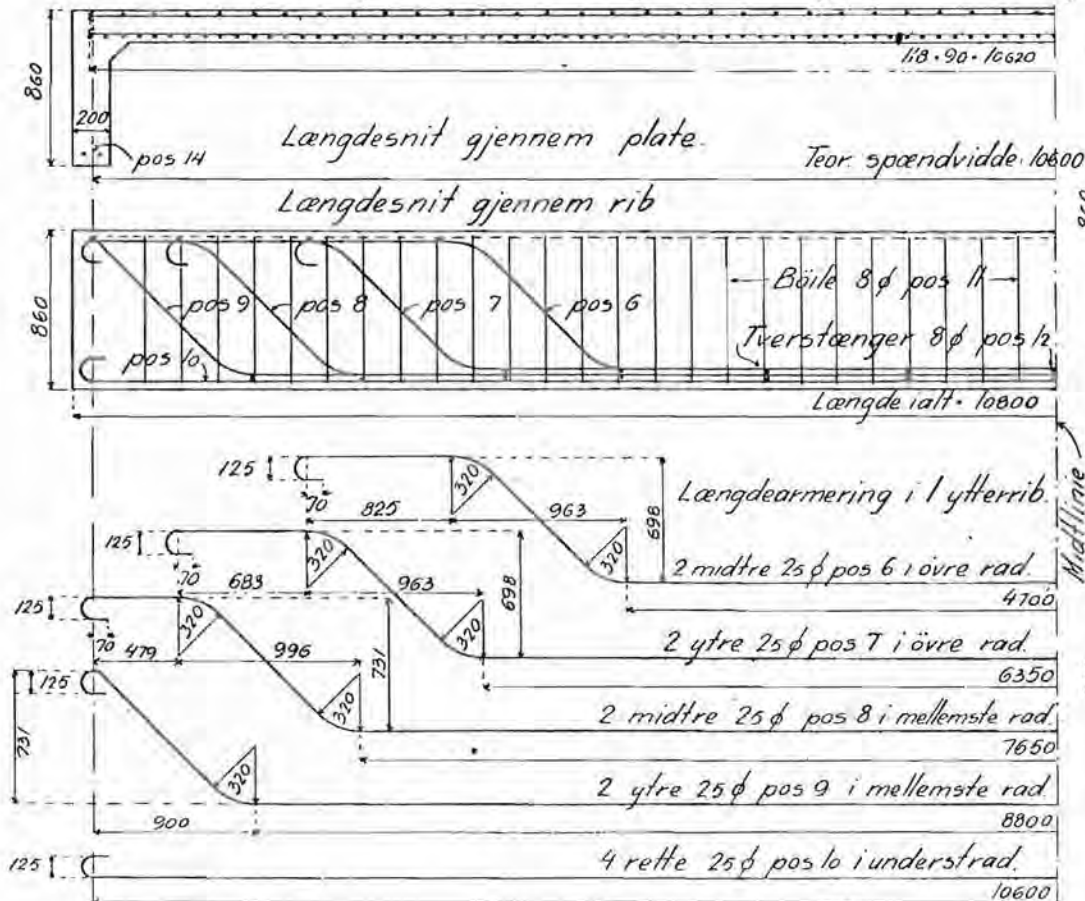 118·90·10620
860
200
pos 14
Længdesnit gjennem plate.
Teor. spændvidde 10600
Længdesnit gjennem rib
860
pos 9
pos 8
pos 7
pos 6
Böile 8ϕ pos 11
pos 10
Tverstænger 8ϕ pos 12
Længde ialt · 10800
Midtlinie
125
70
825
320
963
320
698
Længdearmering i 1 ytterrib.
2 midtre 25ϕ pos 6 i övre rad.
4700
125
70
683
320
963
320
698
2 ytre 25ϕ pos 7 i övre rad.
6350
125
70
479
320
996
320
731
2 midtre 25ϕ pos 8 i mellemste rad.
7650
125
731
320
900
2 ytre 25ϕ pos 9 i mellemste rad.
8800
125
4 rette 25ϕ pos 10 i understrad.
10600